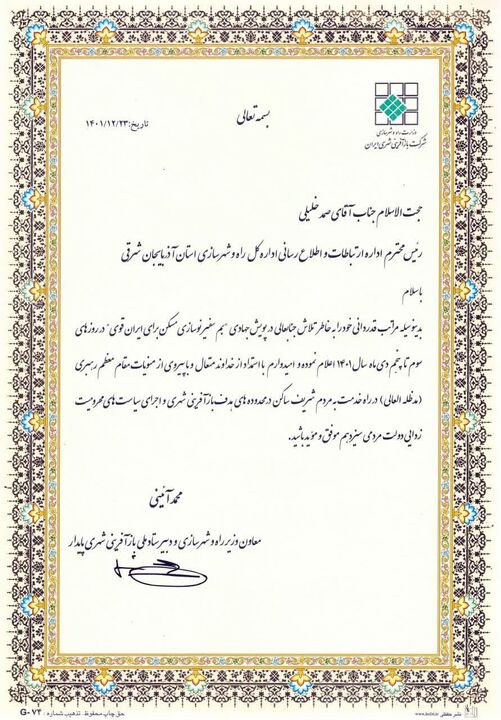 وزارت راه و شهرسازی
شرکت بازآفرینی شهری ایران
بسمه تعالی
تاریخ: ۱۴۰۱/۱۲/۲۳
حجت الاسلام جناب آقای صمد خلیلی
رئیس محترم اداره ارتباطات و اطلاع رسانی اداره کل راه و شهرسازی استان آذربایجان شرقی
باسلام
بدینوسیله مراتب قدردانی خود را به خاطر تلاش جنابعالی در پویش جهادی "هم سفیر نوسازی مسکن برای ایران قوی" در روزهای
سوم تا پنجم دی ماه سال ۱۴۰۱ اعلام نموده و امیدوارم با استمداد از خداوند متعال و با پیروی از منویات مقام معظم رهبری
(مدظله العالی) در راه خدمت به مردم شریف ساکن در محدوده های هدف بازآفرینی شهری و اجرای سیاست های محرومیت
زدایی دولت مردمی سیزدهم موفق و مؤید باشید.
محمد آئینی
معاون وزیر راه و شهرسازی و دبیر ستاد ملی بازآفرینی شهری پایدار
حق چاپ محفوظ. تذهیب شماره: G-۷۳